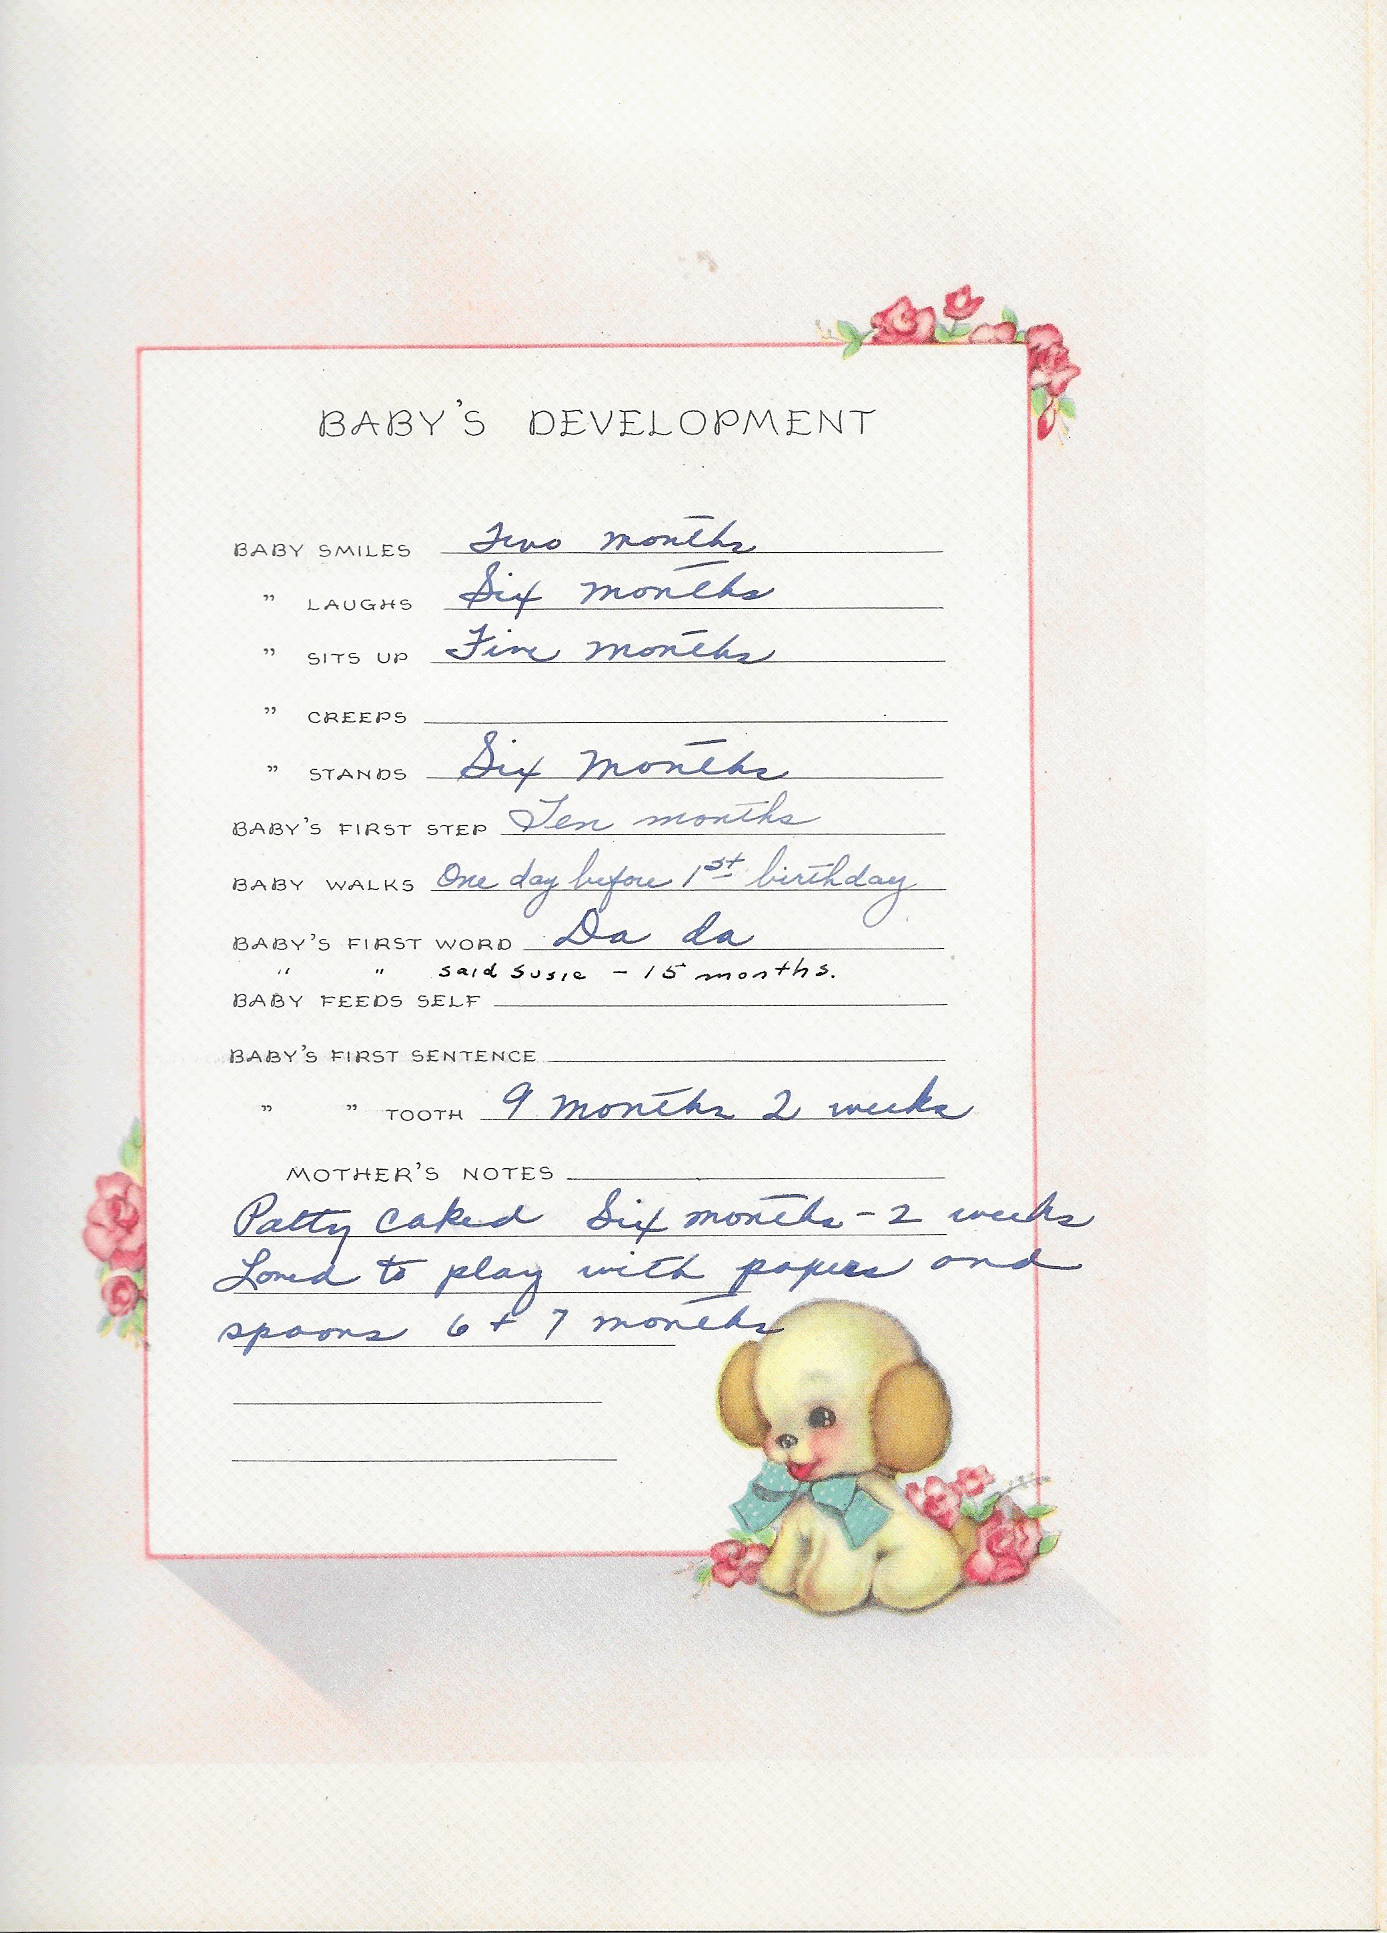 BABY'S DEVELOPMENT
BABY SMILES Two months
" LAUGHS Six months
" SITS UP Five months
" CREEPS
" STANDS Six months
BABY'S FIRST STEP Ten months
BABY WALKS One day before 1st birthday
BABY'S FIRST WORD Da da
" " said Susie - 15 months.
BABY FEEDS SELF
BABY'S FIRST SENTENCE
" " TOOTH 9 months 2 weeks
MOTHER'S NOTES
Patty caked Six months - 2 weeks
Loved to play with papers and
spoons 6 + 7 months